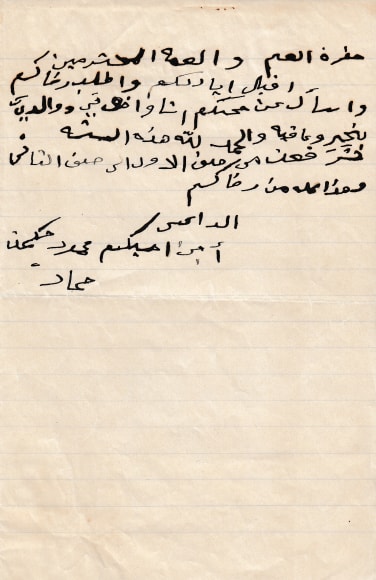 حضرة العم والعمه المحترمين
اقبل اياديكم واطلب رضاكم
واسأل عن صحتكم انا واخوتي ووالديَّ
بخير وعافيه والحمد لله هذه السنه
ترفعت من صف الاول الى صف الثاني
وهذا كله من رضاكم
الداعي
أبن اخيكم محمود
حماد